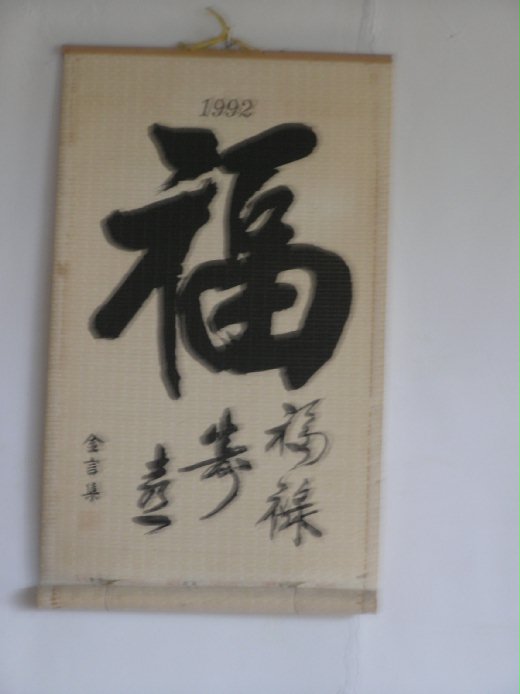 1992
福
福禄
寿
喜
金言集